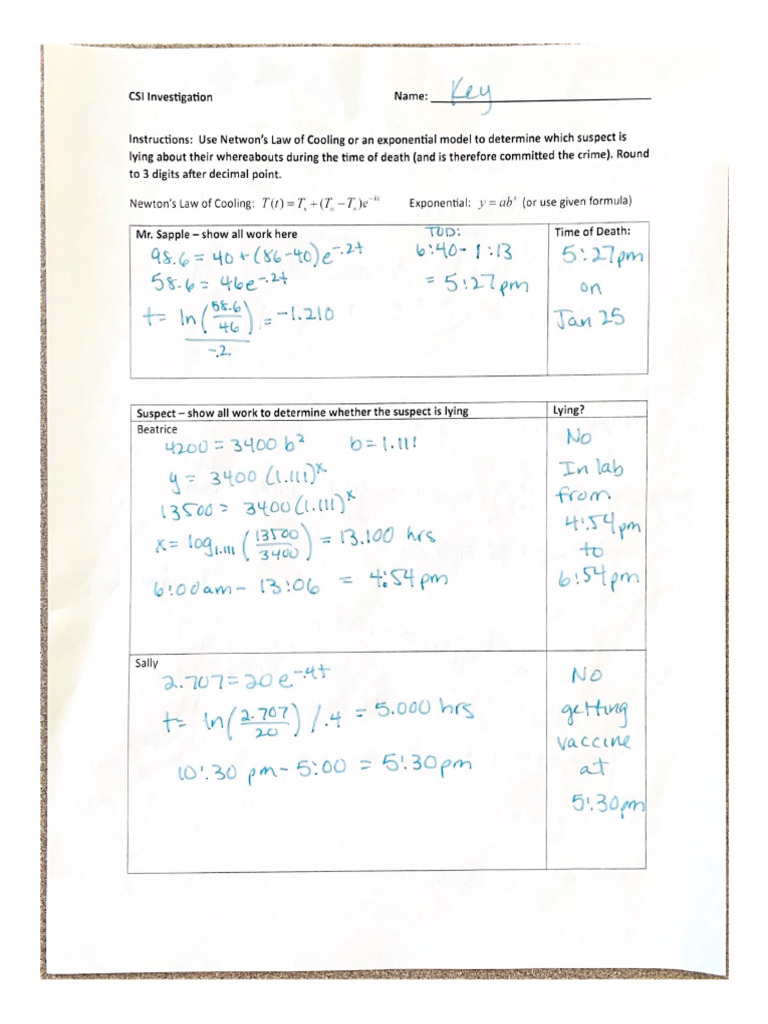 CSI Investigation Name: Key
Instructions: Use Netwon's Law of Cooling or an exponential model to determine which suspect is
lying about their whereabouts during the time of death (and is therefore committed the crime). Round
to 3 digits after decimal point.
Newton's Law of Cooling: T(t) = Tₛ + (Tₒ − Tₛ)e^(−kt) Exponential: y = abˣ (or use given formula)
Mr. Sapple – show all work here
98.6 = 40 + (86-40)e^(-.2t)
58.6 = 46e^(-.2t)
t = ln(58.6/46)/-.2 = -1.210
TOD:
6:40 - 1:13
= 5:27pm
Time of Death:
5:27pm
on
Jan 25
Suspect – show all work to determine whether the suspect is lying
Lying?
Beatrice
4200 = 3400 b² b = 1.111
y = 3400 (1.111)ˣ
13500 = 3400 (1.111)ˣ
x = log₁.₁₁₁ (13500/3400) = 13.100 hrs
6:00am - 13:06 = 4:54pm
No
In lab
from
4:54pm
to
6:54pm
Sally
2.707 = 20 e^(-.4t)
t = ln(2.707/20) / .4 = 5.000 hrs
10:30 pm - 5:00 = 5:30pm
No
getting
vaccine
at
5:30pm